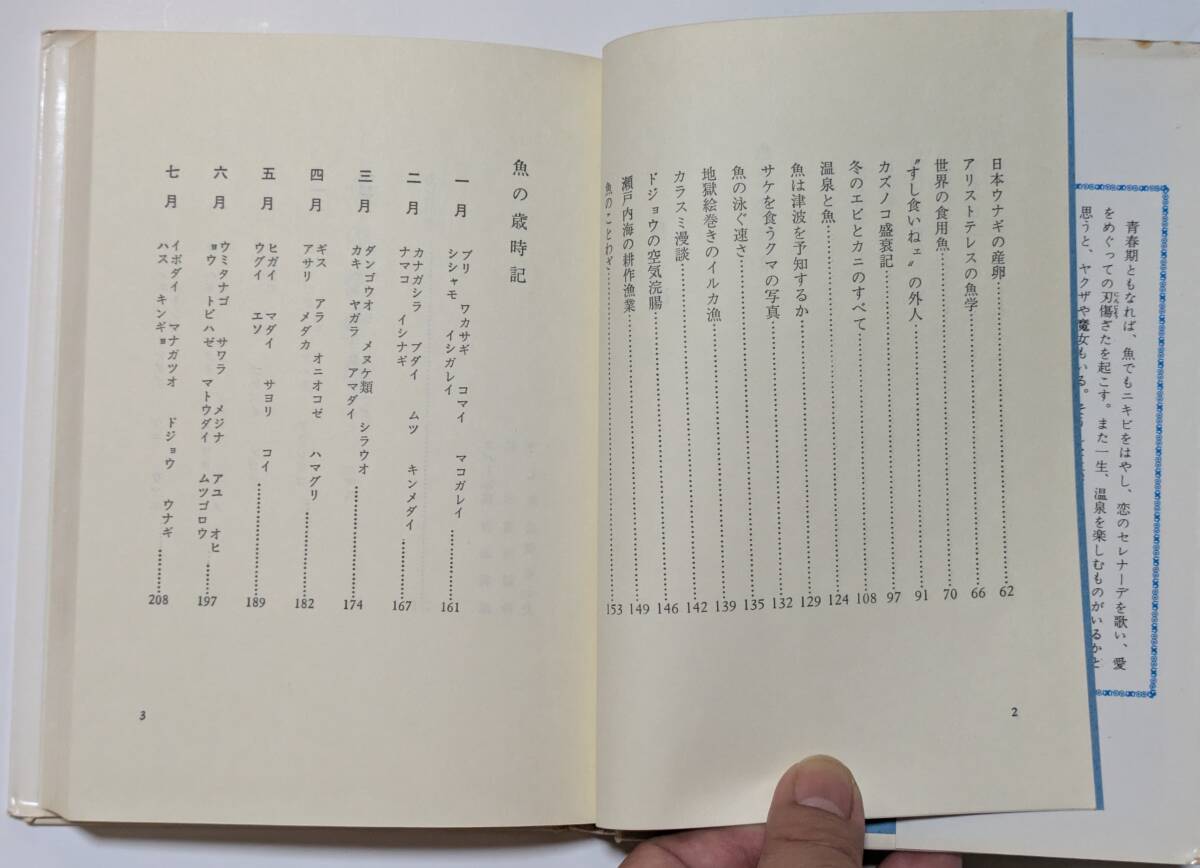 青春期ともなれば、魚でもニキビをはやし、恋のセレナーデを歌い、愛
をめぐっての刃傷ざたを起こす。また一生、温泉を楽しむものがいるかと
思うと、ヤクザや魔女もいる。
日本ウナギの産卵……62
アリストテレスの魚学……66
世界の食用魚……70
〝すし食いねェ〟の外人……91
カズノコ盛衰記……97
冬のエビとカニのすべて……108
温泉と魚……124
魚は津波を予知するか……129
サケを食うクマの写真……132
魚の泳ぐ速さ……135
地獄絵巻きのイルカ漁……139
カラスミ漫談……142
ドジョウの空気浣腸……146
瀬戸内海の耕作漁業……149
魚のことわざ……153
2
魚の歳時記
一月 ブリ ワカサギ コマイ マコガレイ
シシャモ イシガレイ……161
二月 カナガシラ ブダイ ムツ キンメダイ
ナマコ イシナギ……167
三月 ダンゴウオ メヌケ類 シラウオ
カキ ヤガラ アマダイ……174
四月 ギス アラ オニオコゼ ハマグリ
アサリ メダカ……182
五月 ヒガイ マダイ サヨリ コイ
ウグイ エソ……189
六月 ウミタナゴ サワラ メジナ アユ オヒ
ョウ トビハゼ マトウダイ ムツゴロウ……197
七月 イボダイ マナガツオ ドジョウ ウナギ
ハス キンギョ……208
3